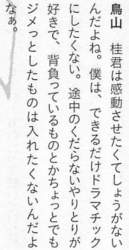 鳥山　桂君は感動させたくてしょうがない
んだよね。僕は、できるだけドラマチック
にしたくない。途中のくだらないやりとりが
好きで、背負っているものとかちょっとでも
ジメっとしたものは入れたくないんだよ
なぁ。